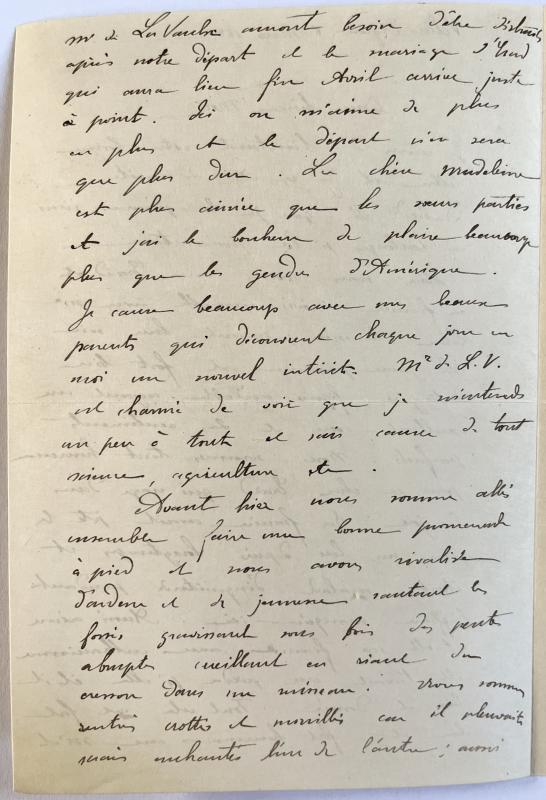 Mr de La Vaulx auront besoin d'être distraits
après notre départ et le mariage d'
qui aura lieu fin Avril arrive juste
à point. Ici on m'aime de plus
en plus et le départ n'en sera
que plus dur. La chère Madeleine
est plus aimée que les sœurs parties
et j'ai le bonheur de plaire beaucoup
plus que les gendres d'Amérique.
Je cause beaucoup avec mes beaux
parents qui découvrent chaque jour en
moi un nouvel intérêt. Mr de L.V.
est charmé de voir que je m'entends
un peu à tout et sais causer de tout
science, agriculture etc.
Avant hier nous sommes allés
ensemble faire une bonne promenade
à pied et nous avons rivalisé
d'ardeur et de jeunesse sautant les
fossés gravissant sous bois des pentes
abruptes cueillant en riant du
cresson dans un ruisseau. Nous sommes
rentrés crottés et mouillés car il pleuvait
mais enchantés l'un de l'autre; aussi